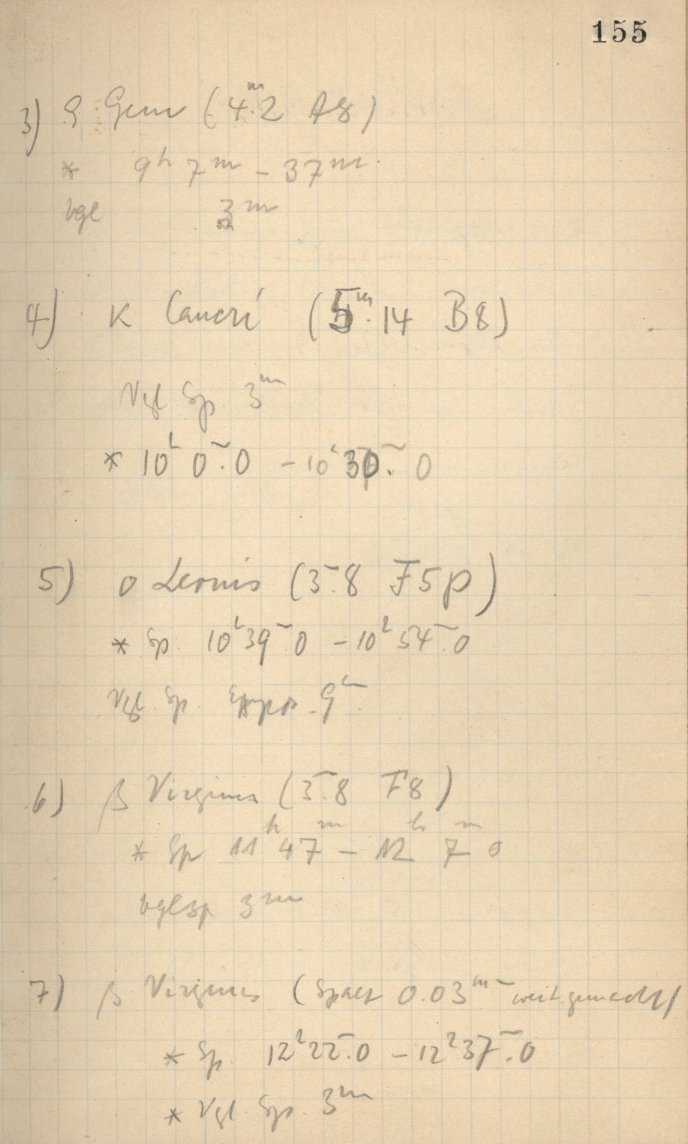 155
3) Gem (4.2^m A8)
* 9^h 7^m – 37^m
vgl 3^m
4) κ Cancri (5^m.14 B8)
Vgl Sp. 3^m
* 10^h 0^m.0 – 10^h 30^m.0
5) o Leonis (3^m.8 F5p)
* Sp. 10^h 39^m.0 – 10^h 54^m.0
Vgl Sp. 9^m
6) β Virginis (3^m.8 F8)
* Sp 11^h 47^m – 12^h 7^m 0
vglsp 3^m
7) β Virginis (Spalt 0.03^mm weit gemacht)
* Sp. 12^h 22^m.0 – 12^h 37^m.0
* Vgl. Sp. 3^m